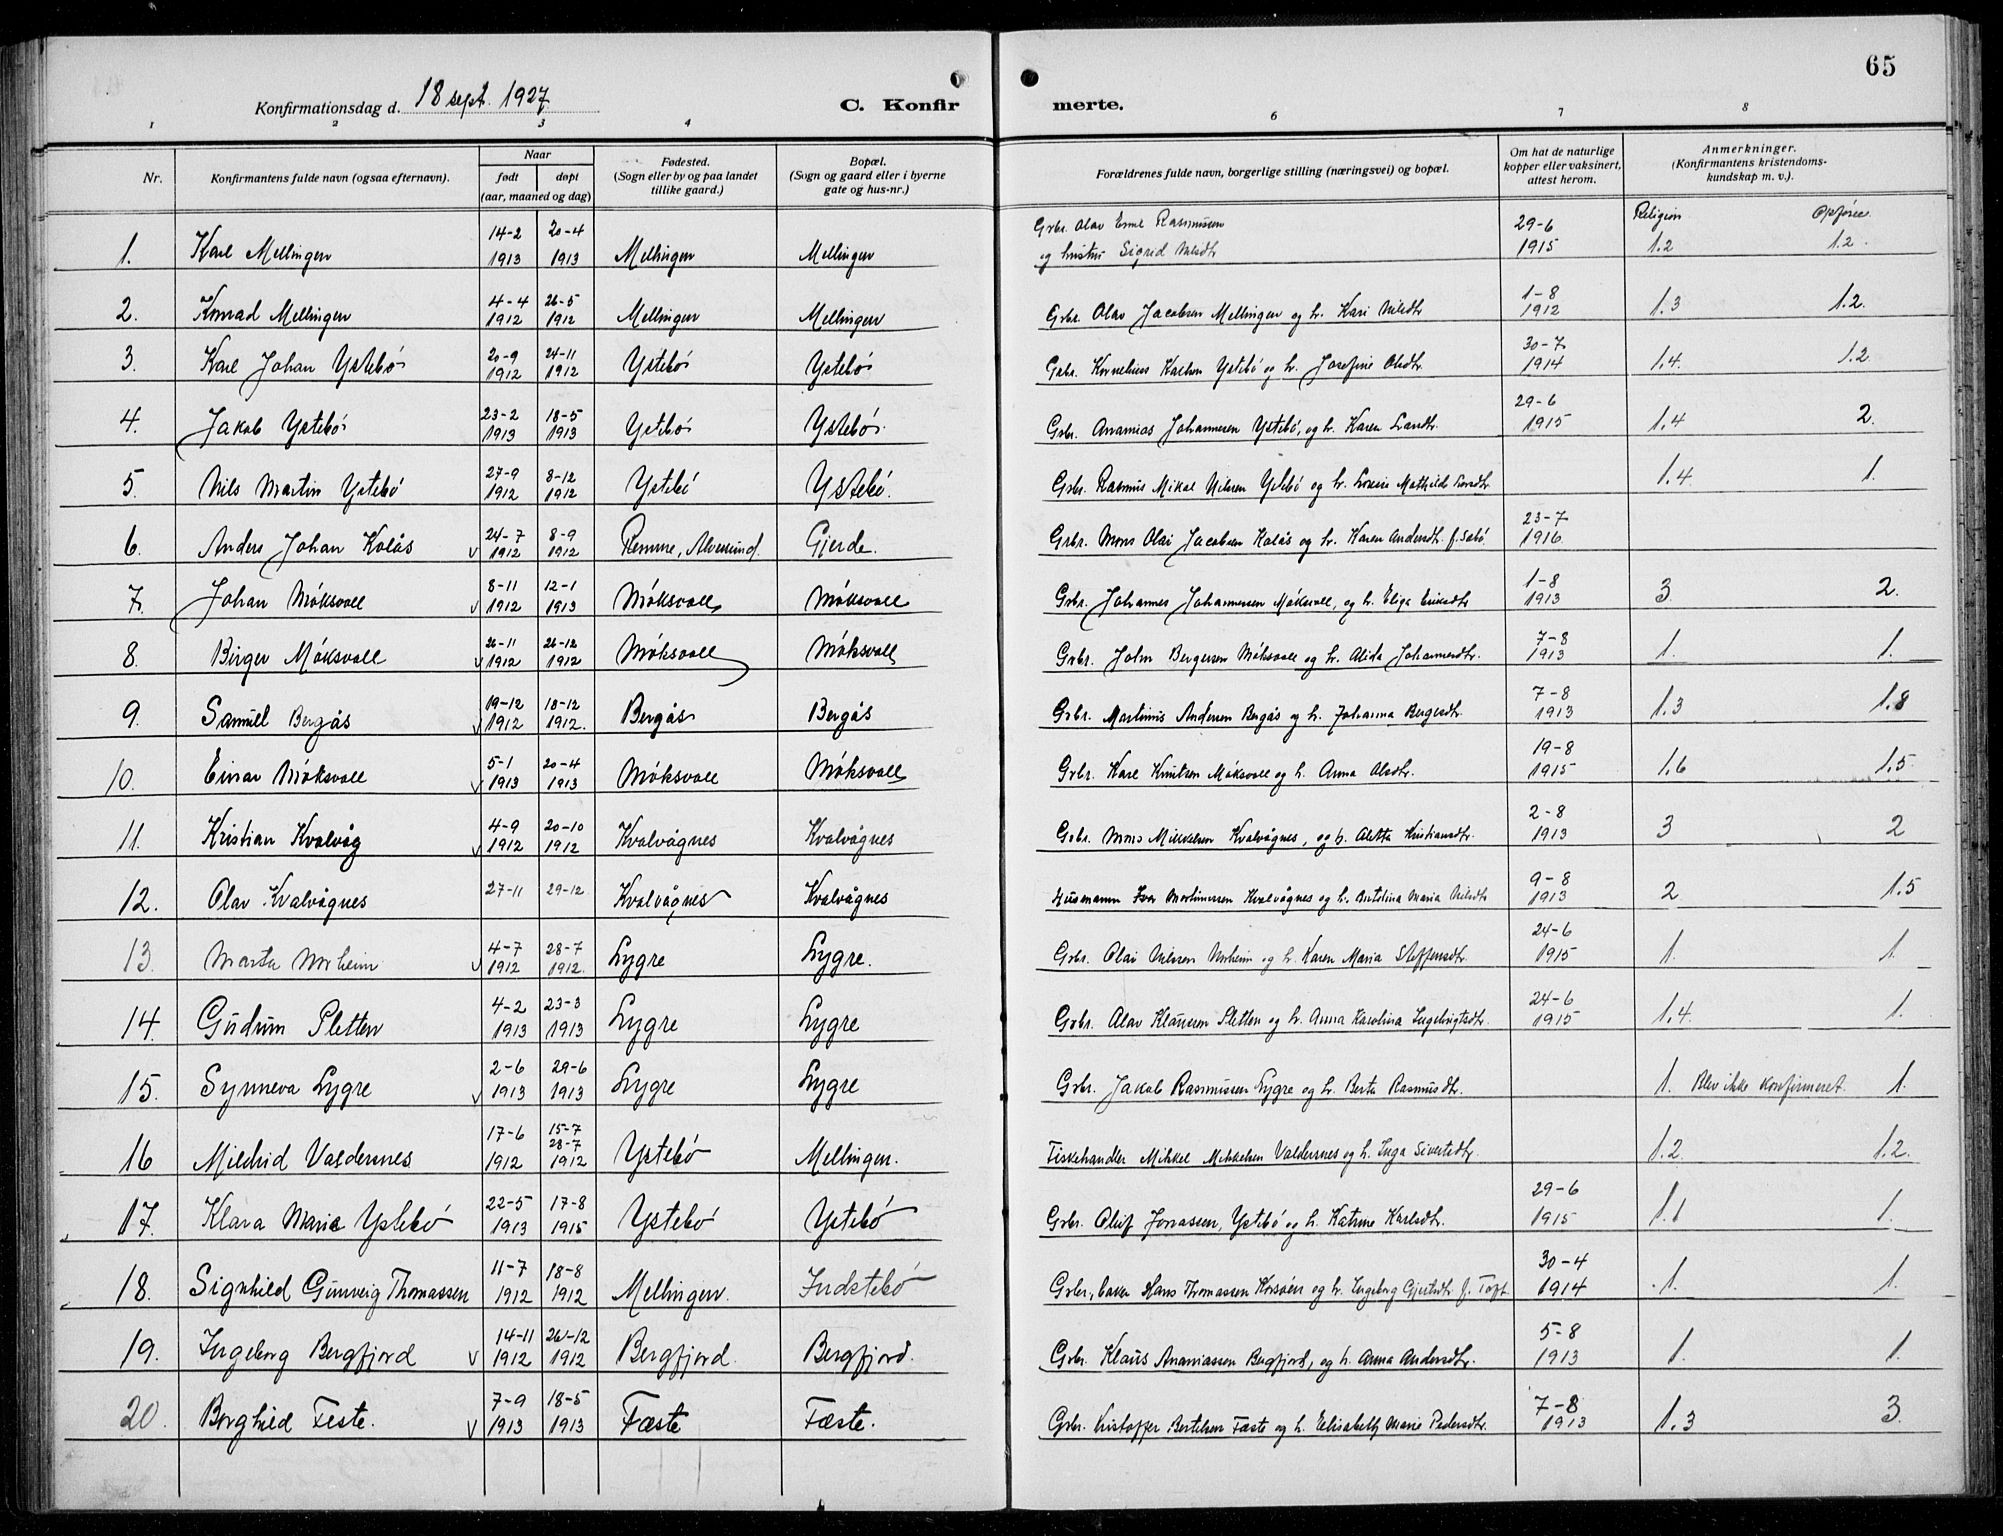 65
Konfirmationsdag d. 18 sept. 1927
C. Konfirmerte.
1 2 3 4 6 7 8
Nr.
Konfirmantens fulde navn (ogsaa efternavn).
Naar
født døpt
(aar, maaned og dag)
Fødested.
(Sogn eller by og paa landet
tillike gaard.)
Bopæl.
(Sogn og gaard eller i byerne
gate og hus-nr.)
Forældrenes fulde navn, borgerlige stilling (næringsvei) og bopæl.
Om hat de naturlige
kopper eller vaksinert,
attest herom.
Anmerkninger.
(Konfirmantens kristendoms-
kundskap m. v.).
Religion Opførsel
1. Karl Mellingen 14-2 1913 20-4 1913 Mellingen Mellingen Grbr. Olav Emil Rasmussen og hustru Sigrid Nilsdtr 29-6 1915 1.2 1.2.
2. Konrad Mellingen 4-4 1912 26-5 1912 Mellingen Mellingen Grbr. Olav Jacobsen Mellingen og h. Kari Nilsdtr 1-8 1912 1.3 1.2.
3. Karl Johan Ystebø 20-9 1912 24-11 1912 Ystebø Ystebø Grbr. Kornelius Karlsen Ystebø og h. Josefine Olsdtr. 30-7 1914 1.4. 1.2
4. Jakob Ystebø 23-2 1913 18-5 1913 Ystebø Ystebø. Grbr. Ananias Johannesen Ystebø, og h. Karen 29-6 1915 1.4 2.
5. Nils Martin Ystebø 27-9 1912 8-12 1912 Ystebø Ystebø. Grbr. Rasmus Mikal Nilsen Ystebø og h. Lovise Mathilde 1.4 1.
6. Anders Johan Kolås v 24-7 1912 8-9 1912 Remme, Alversund. Gjerde. Grbr. Mons Olai Jacobsen Kolås og h. Karen Andersdtr. f. Sæbø. 23-7 1916
7. Johan Møksvoll v 8-11 1912 12-1 1913 Møksvoll Møksvoll Grbr. Johannes Johannessen Møksvoll, og h. Eriksdtr 1-8 1913 3. 2.
8. Birger Møksvoll v 26-11 1912 26-12 1912 Møksvoll Møksvoll Grbr. John Bergersen Møksvoll og h. Alida Johannesdtr. 7-8 1913 1. 1.
9. Samuel Bergås v 19-12 1912 18-12 1912. Bergås Bergås Grbr. Martinus Andersen Bergås og h. Johanna Bergesdtr. 7-8 1913 1.3 1.8
10. Einar Møksvoll v 5-1 1913 20-4 1913 Møksvoll Møksvoll Grbr. Karl Knutsen Møksvoll og h. Anna Olsdtr. 19-8 1915 1.6 1.5
11. Kristian Kvalvåg v 4-9 1912 20-10 1912 Kvalvågnes Kvalvågnes Grbr. Mons Mikkelsen Kvalvågnes, og h. Aletta Kristiansdtr. 2-8 1913 3 2
12. Olav Kvalvågnes 27-11 29-12 Kvalvågnes Kvalvågnes Husmann Ivar Martinussen Kvalvågnes og h. Antolina Maria Nilsdtr 9-8 1913 2 1.5
13. Marta Norheim v 4-7 1912 28-7 1912. Lygre Lygre. Grbr. Olai Nilsen Norheim og h. Karen Maria Steffensdtr. 24-6 1915 1. 1.
14. Gudrun Sletten 4-2 1913 23-3 1913 Lygre Lygre Grbr. Olav Klausen Sletten og h. Anna Karolina Ingebrigtsdtr. 24-6 1915 1.4. 1.
15. Synneva Lygre v 2-6 1913 29-6 1913 Lygre Lygre Grbr. Jakob Rasmussen Lygre og h. Berta Rasmusdtr. 1. Blev ikke konfirmeret. 1.
16 Mildrid Valdersnes 17-6 1912 15-7 28-7 1912 Ystebø Mellingen. Fiskehandler Mikkel Mikkelsen Valdersnes og h. Inga Sivertsdtr. 1.2. 1.2.
17. Klara Marie Ystebø 22-5 1913 17-8 1915 Ystebø Ystebø Grbr. Oluf Jonassen, Ystebø og h. Katrine Karlsdtr. 29-6 1915 1.1 1.
18. Signhild Gunveig Thomassen 11-7 1912 18-8 1912 Mellingen. Indstebø Grbr., baker Hans Thomassen Korsøen og h. Ingeborg Gjertsdtr. f. Toft. 30-4 1914 1. 1.
19. Ingeborg Bergfjord v 14-11 1912 26-12 1912 Bergfjord. Bergfjord. Grbr. Klaus Ananiassen Bergfjord, og h. Anna Andersdtr. 5-8 1913 1. 1.
20. Borghild Feste. v 7-9 1913 18-5 1913 Fæste Fæste. Grbr. Kristoffer Bertelsen Fæste og h. Elisabeth Marie Pedersdtr. 7-8 1913 1.3 3.